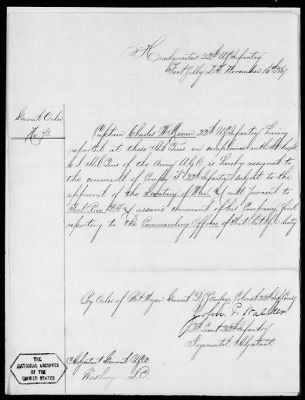 Headquarters 22d U.S. Infantry
Fort Sully D.T. November 16th 1869
General Order
No. 72
Captain Charles W. 22d U.S. Infantry having
reported at these Hd Qrs in compliance with
Hd Qrs of the Army A.G.O. is hereby assigned to
the command of Company F 22d Infantry subject to the
approval of the Secretary of War & will proceed to
Fort Rice D.T. & assume command of his Company, first
reporting to the Commanding Officer of that Post for duty
By Order of Bvt Major General D.S. Stanley Colonel 22d Infantry
John
1st Lieut 22d Infantry
Regimental Adjutant
Adjutant General U.S.A.
Washington D.C.
THE
NATIONAL ARCHIVES
OF THE
UNITED STATES